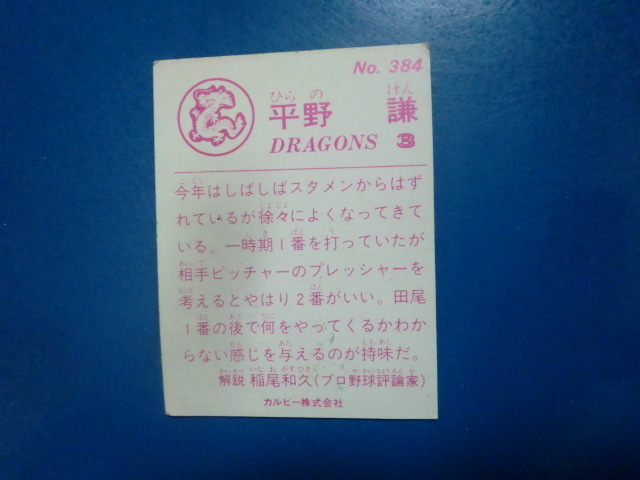 No. 384
ひらの けん
平野 謙
DRAGONS 3
今年はしばしばスタメンからはず
れているが徐々によくなってきて
いる。一時期1番を打っていたが
相手ピッチャーのプレッシャーを
考えるとやはり2番がいい。田尾
1番の後で何をやってくるかわか
らない感じを与えるのが特味だ。
解説 稲尾和久(プロ野球評論家)
カルビー株式会社